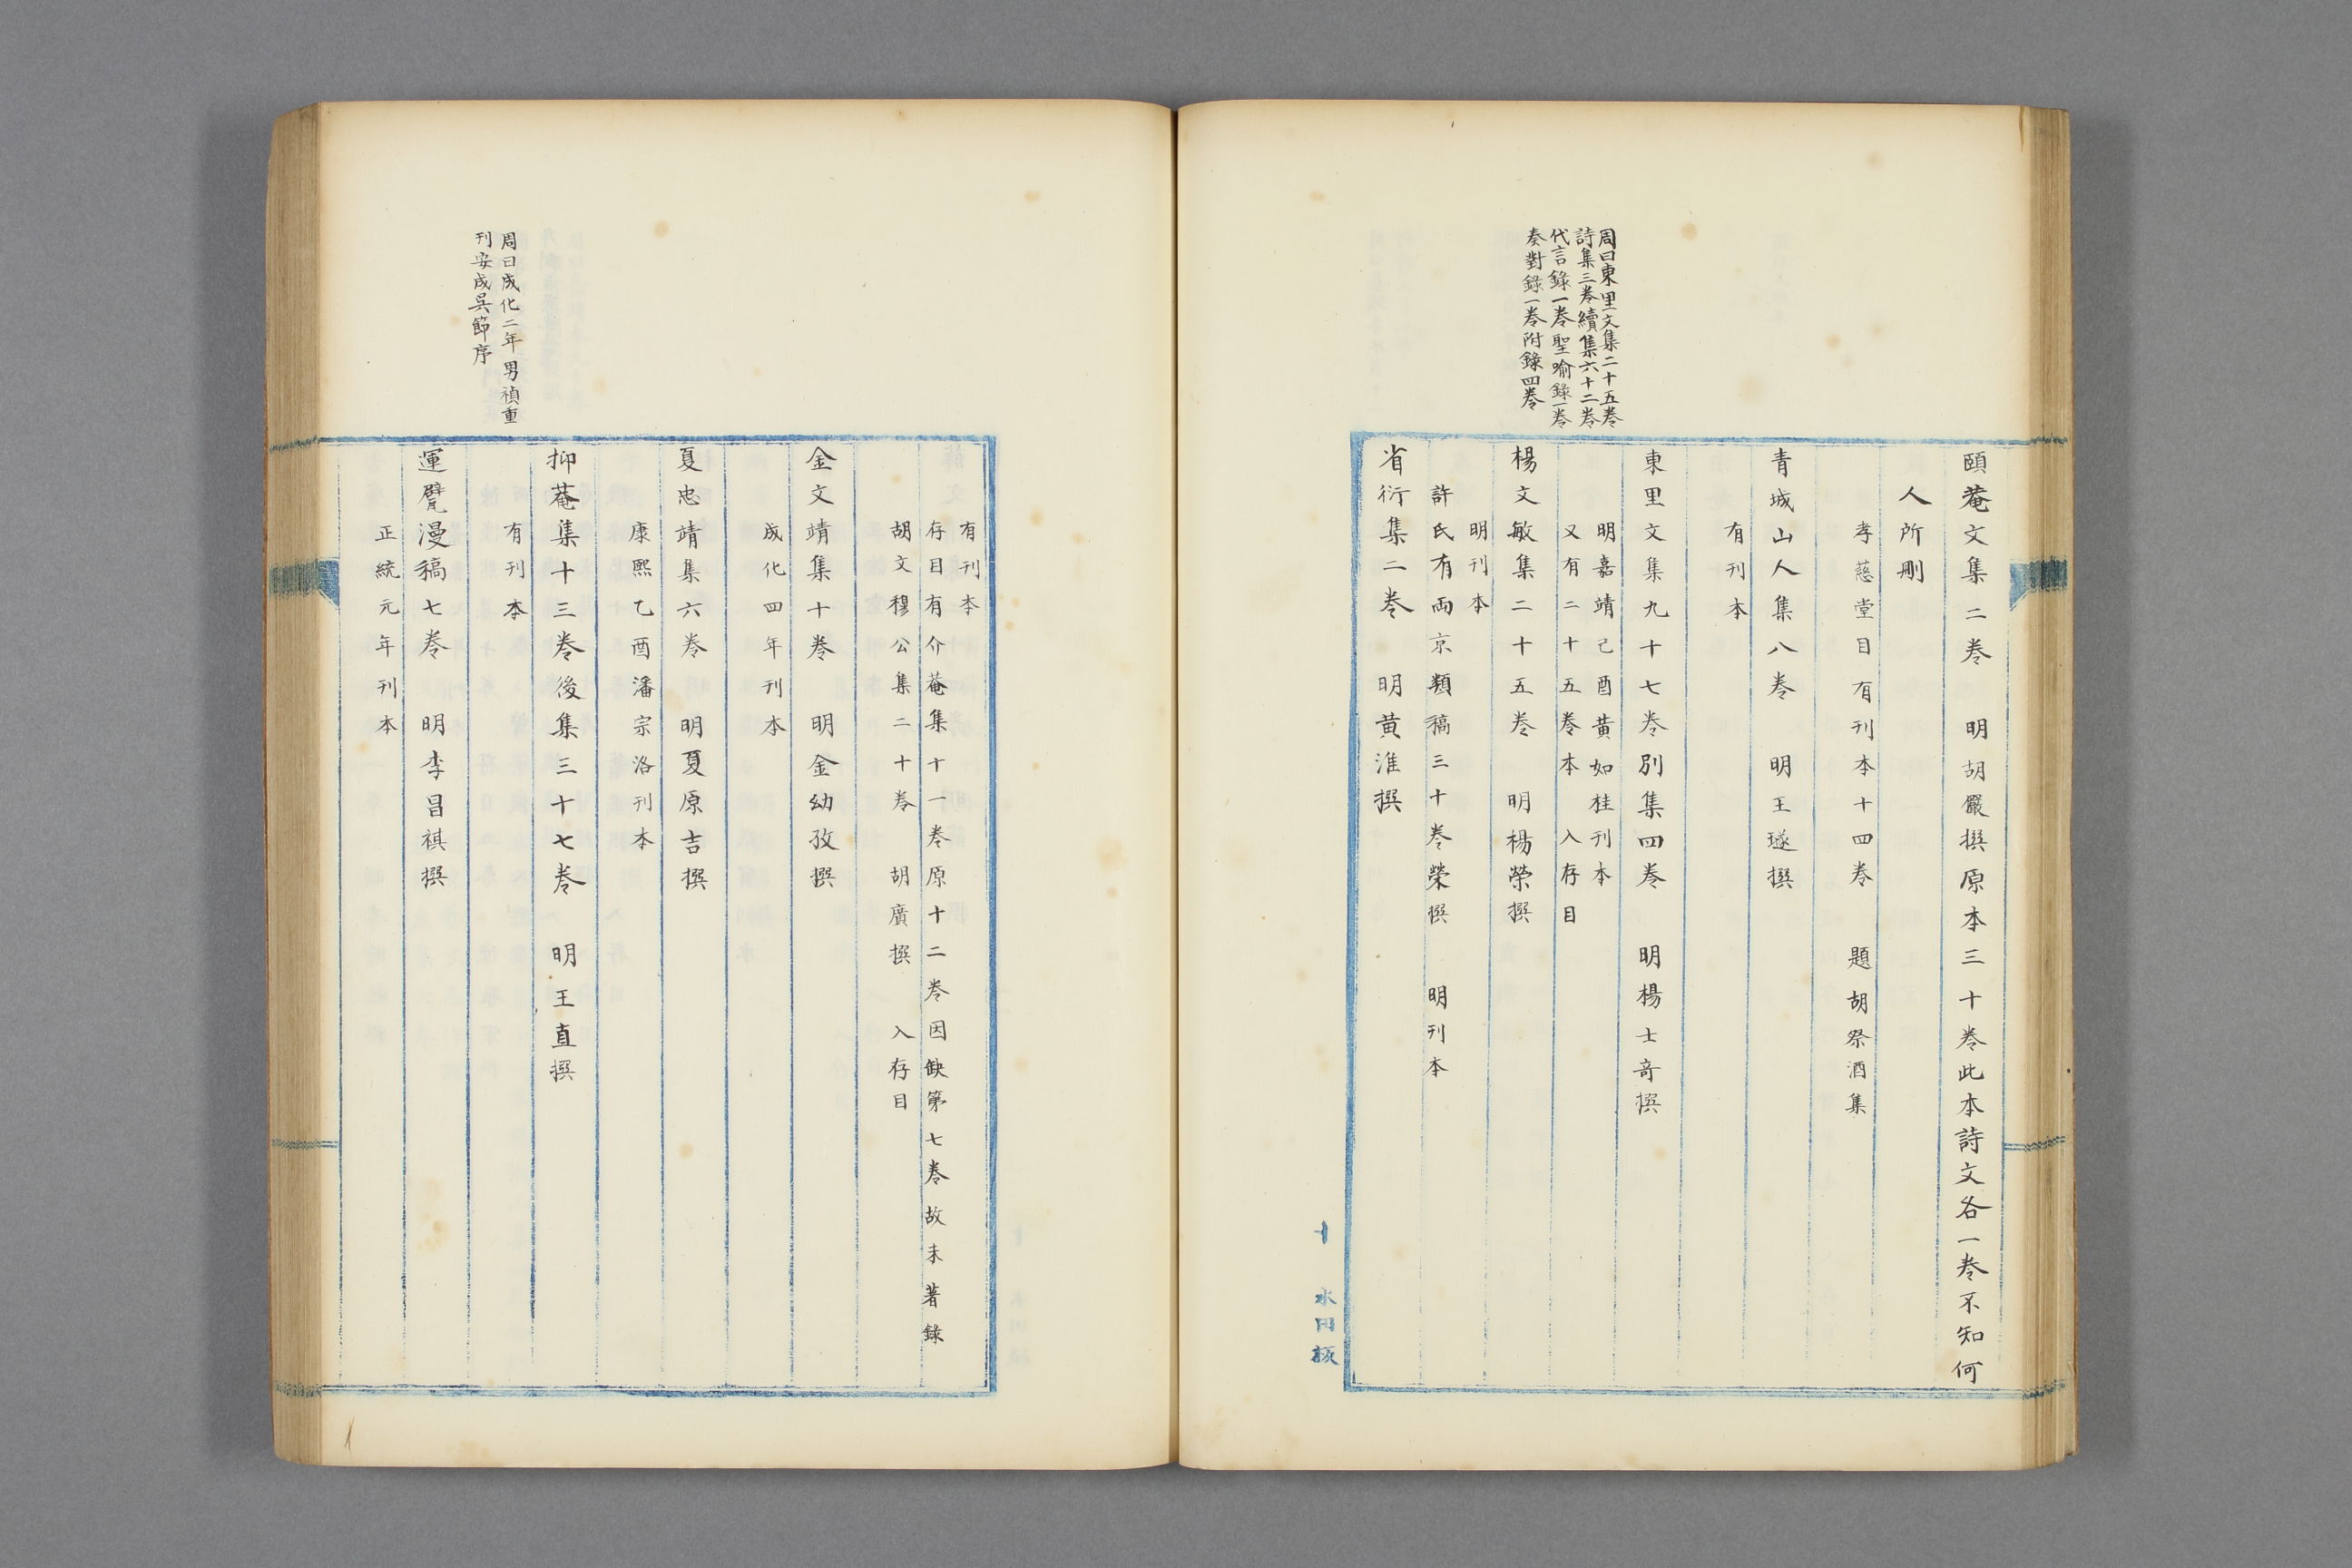 周曰東里文集二十五卷
詩集三卷續集六十二卷
代言錄一卷聖喻錄一卷
奏對錄一卷附錄四卷
頤菴文集二卷 明胡儼撰原本三十卷此本詩文各一卷不知何
人所刪
孝慈堂目有刊本十四卷 題胡祭酒集
青城山人集八卷 明王璲撰
有刊本
東里文集九十七卷別集四卷 明楊士奇撰
明嘉靖己酉黃如桂刊本
又有二十五卷本 入存目
楊文敏集二十五卷 明楊榮撰
明刊本
許氏有兩京類稿三十卷榮撰 明刊本
省衍集二卷 明黃淮撰
十 水田板
周曰成化二年男禎重
刊安成吳節序
有刊本
存目有介菴集十一卷原十二卷因缺第七卷故未著錄
胡文穆公集二十卷 胡廣撰 入存目
金文靖集十卷 明金幼孜撰
成化四年刊本
夏忠靖集六卷 明夏原吉撰
康熙乙酉潘宗洛刊本
抑菴集十三卷後集三十七卷 明王直撰
有刊本
運甓漫稿七卷 明李昌祺撰
正統元年刊本